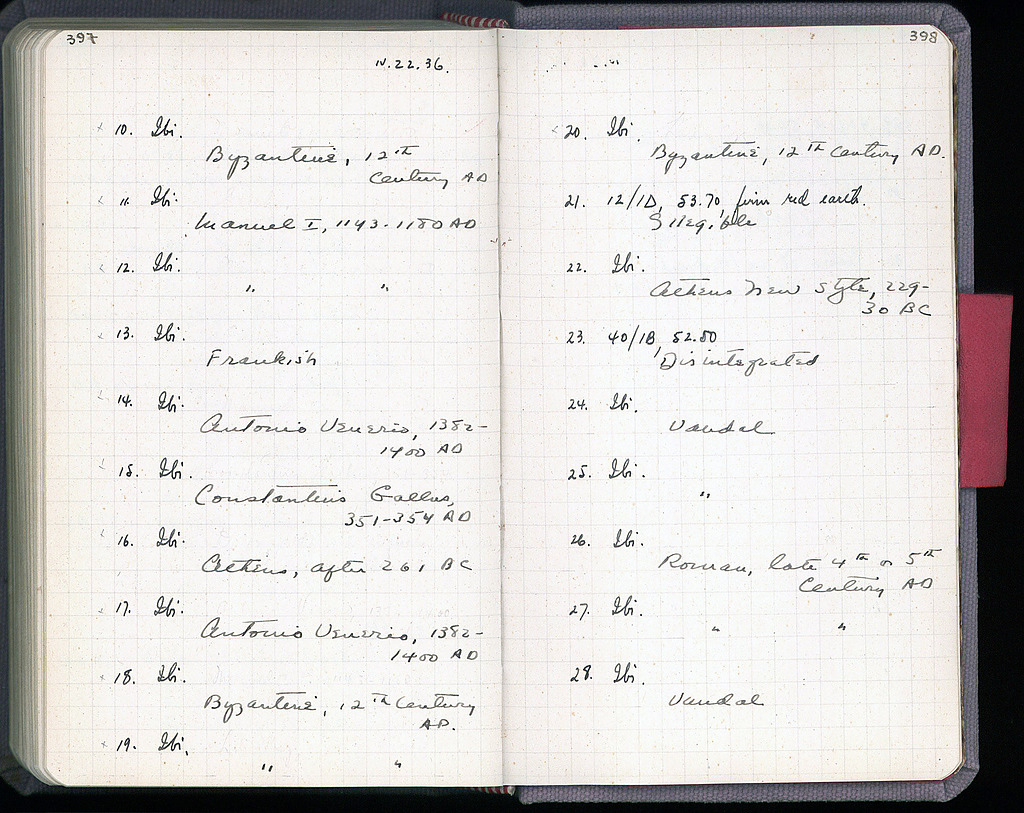 397
IV.22.36.
10. Ibi.
Byzantine, 12th
Century AD
11. Ibi.
Manuel I, 1143-1180 AD
12. Ibi.
" "
13. Ibi.
Frankish
14. Ibi.
Antonio Venerio, 1382-
1400 AD
15. Ibi.
Constantius Gallus,
351-354 AD
16. Ibi.
Athens, after 261 BC
17. Ibi.
Antonio Venerio, 1382-
1400 AD
18. Ibi.
Byzantine, 12th Century
AD.
19. Ibi.
" "
398
20. Ibi.
Byzantine, 12th Century AD.
21. 12/ΙΔ, 53.70, firm red earth.
Illegible
22. Ibi.
Athens New Style, 229-
30 BC
23. 40/ΙΒ, 52.50
Disintegrated
24. Ibi.
Vandal
25. Ibi.
"
26. Ibi.
Roman, late 4th or 5th
Century AD
27. Ibi.
" "
28. Ibi.
Vandal